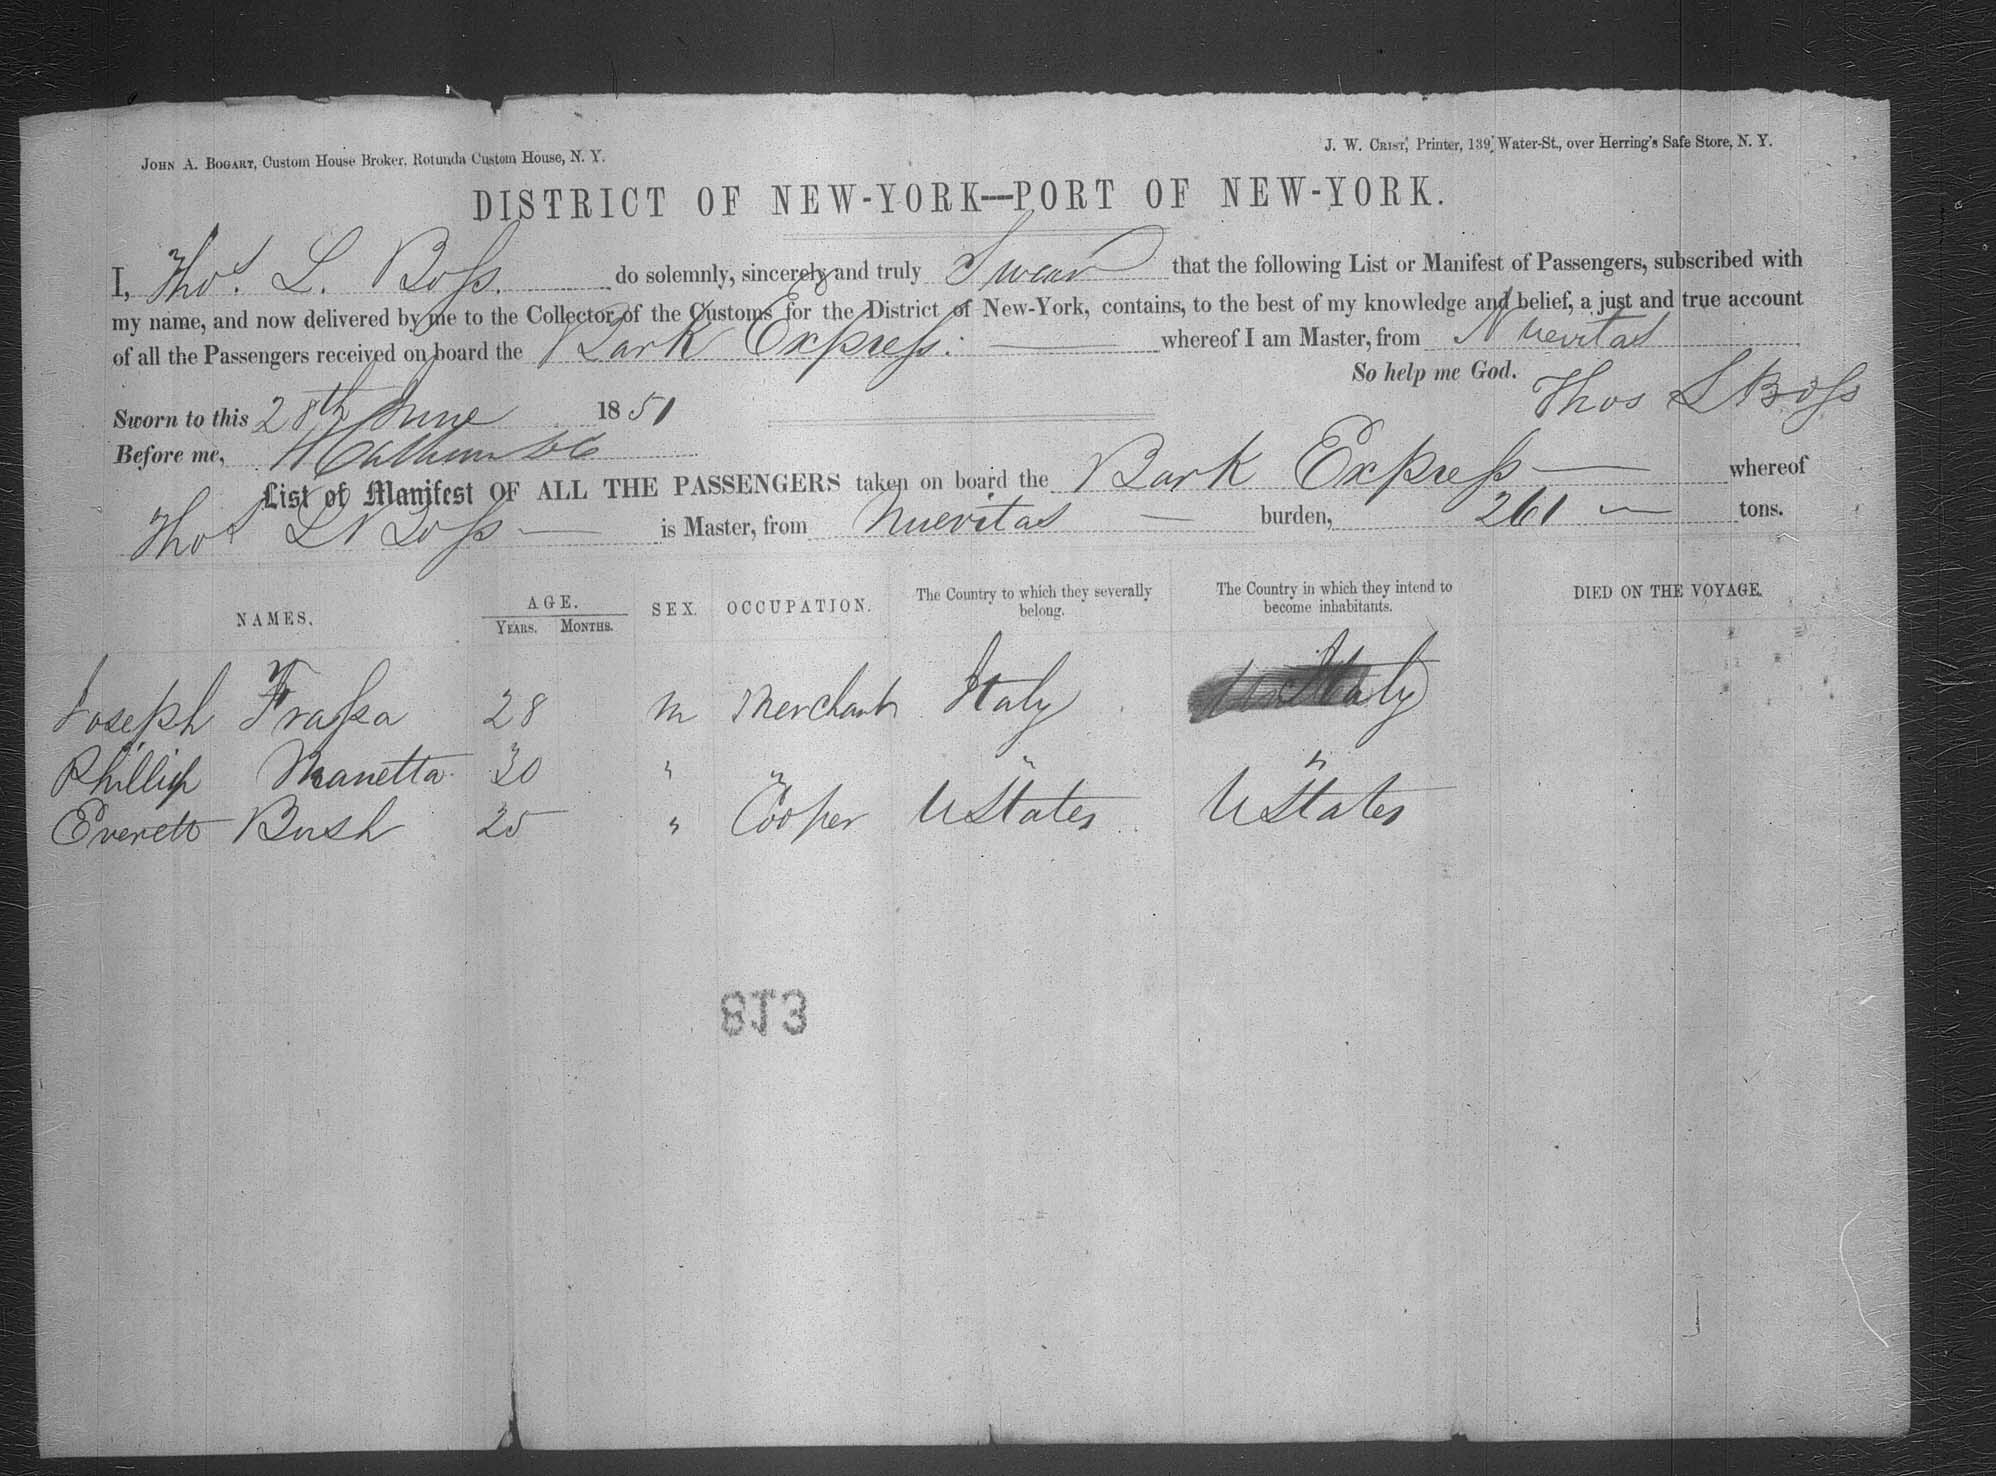 John A. Bogart, Custom House Broker, Rotunda Custom House, N. Y.
J. W. Crist, Printer, 139 Water-St., over Herring's Safe Store, N. Y.
DISTRICT OF NEW-YORK—PORT OF NEW-YORK.
I, Thos. L. Boss. do solemnly, sincerely and truly Swear that the following List or Manifest of Passengers, subscribed with
my name, and now delivered by me to the Collector of the Customs for the District of New-York, contains, to the best of my knowledge and belief, a just and true account
of all the Passengers received on board the Bark Express. whereof I am Master, from Nuevitas
So help me God.
Thos L Boss
Sworn to this 28th June 1851
Before me,
List of Manifest OF ALL THE PASSENGERS taken on board the Bark Express — whereof
Thos L Boss — is Master, from Nuevitas — burden, 261 — tons.
NAMES. AGE. YEARS. MONTHS. SEX. OCCUPATION. The Country to which they severally belong. The Country in which they intend to become inhabitants. DIED ON THE VOYAGE.
Joseph Frassa 28 m Merchant Italy Italy
Phillip Manetta 30 " " " "
Everett Bush 25 " Cooper UStates UStates
813